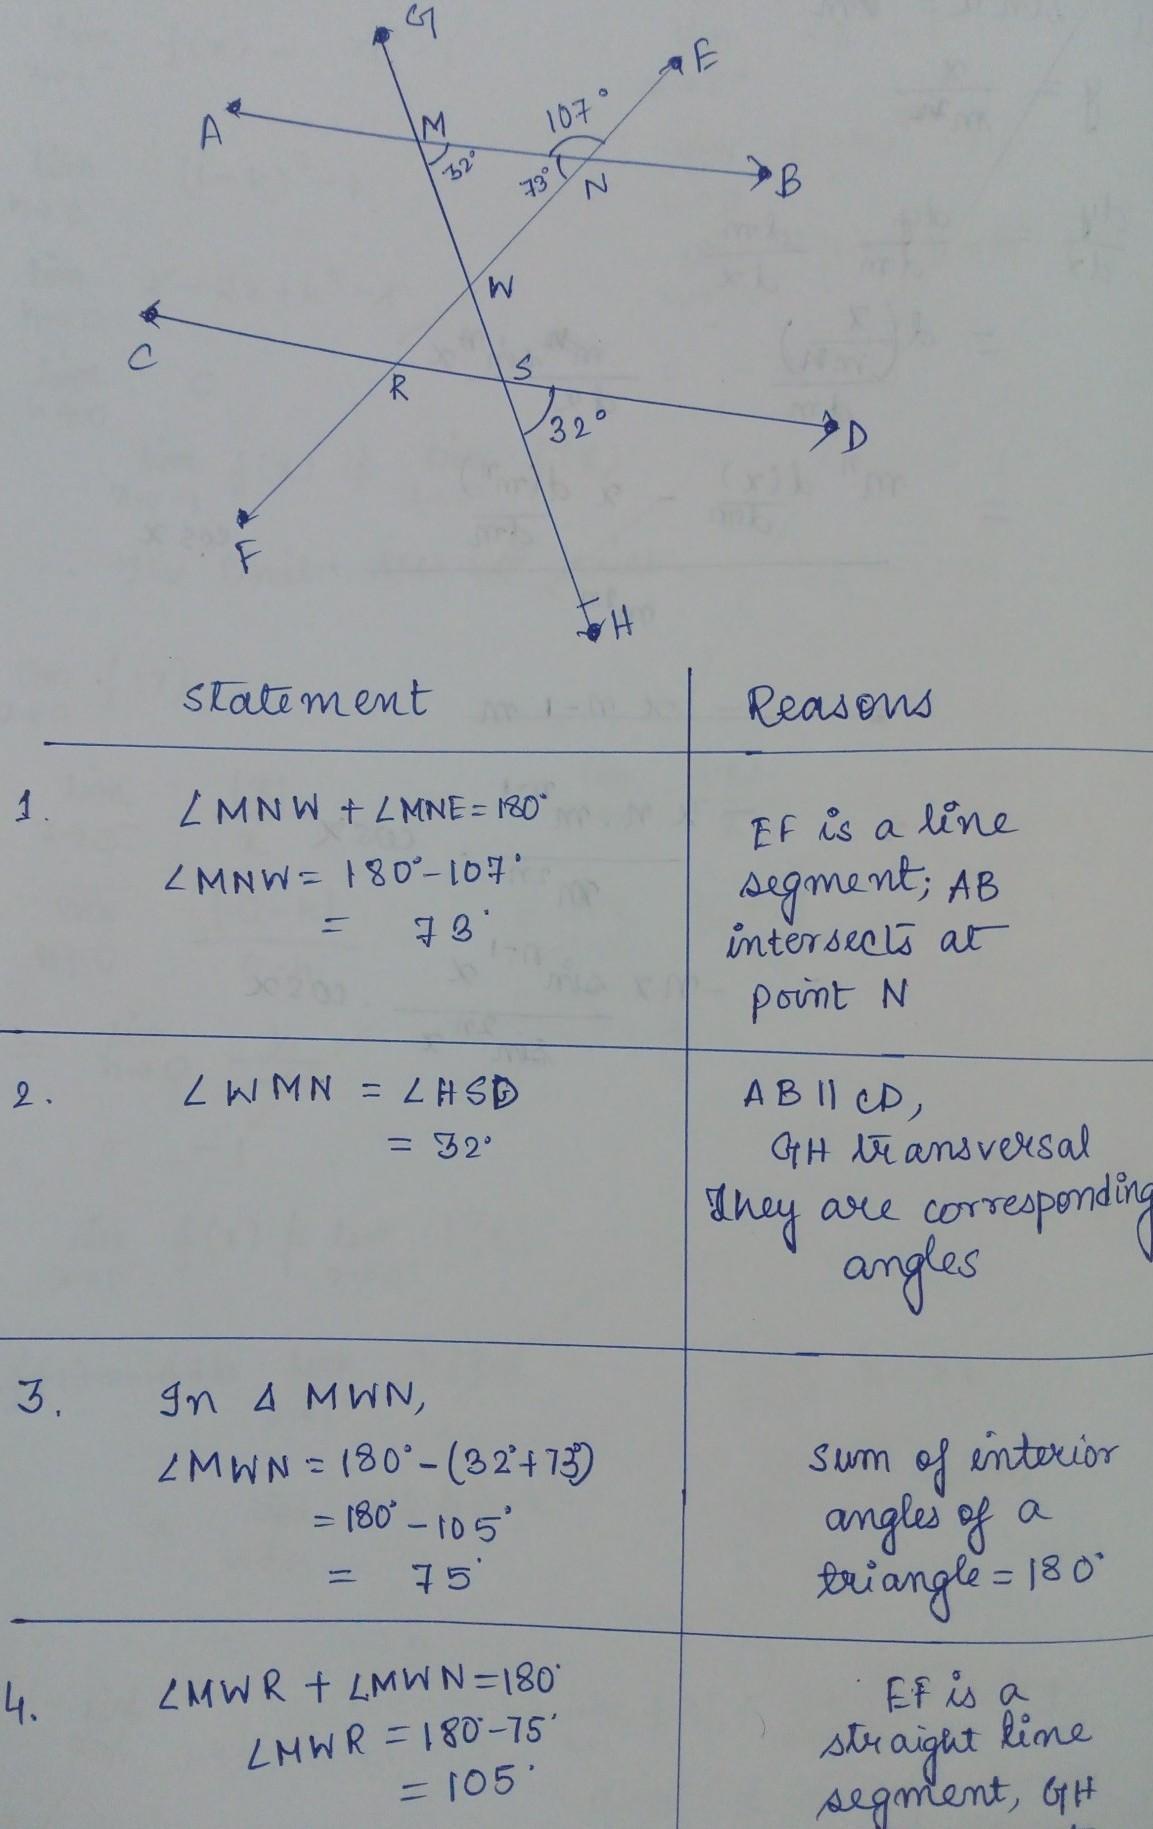 G
E
A
M
107°
32°
73°
N
B
W
C
R
S
32°
D
F
H
Statement
Reasons
1.
∠MNW + ∠MNE = 180°
∠MNW = 180° - 107°
= 73°
EF is a line
segment; AB
intersects at
point N
2.
∠WMN = ∠HSD
= 32°
AB || CD,
GH transversal
They are corresponding
angles
3.
In Δ MWN,
∠MWN = 180° - (32° + 73°)
= 180° - 105°
= 75°
Sum of interior
angles of a
triangle = 180°
4.
∠MWR + ∠MWN = 180°
∠MWR = 180° - 75°
= 105°
EF is a
straight line
segment, GH